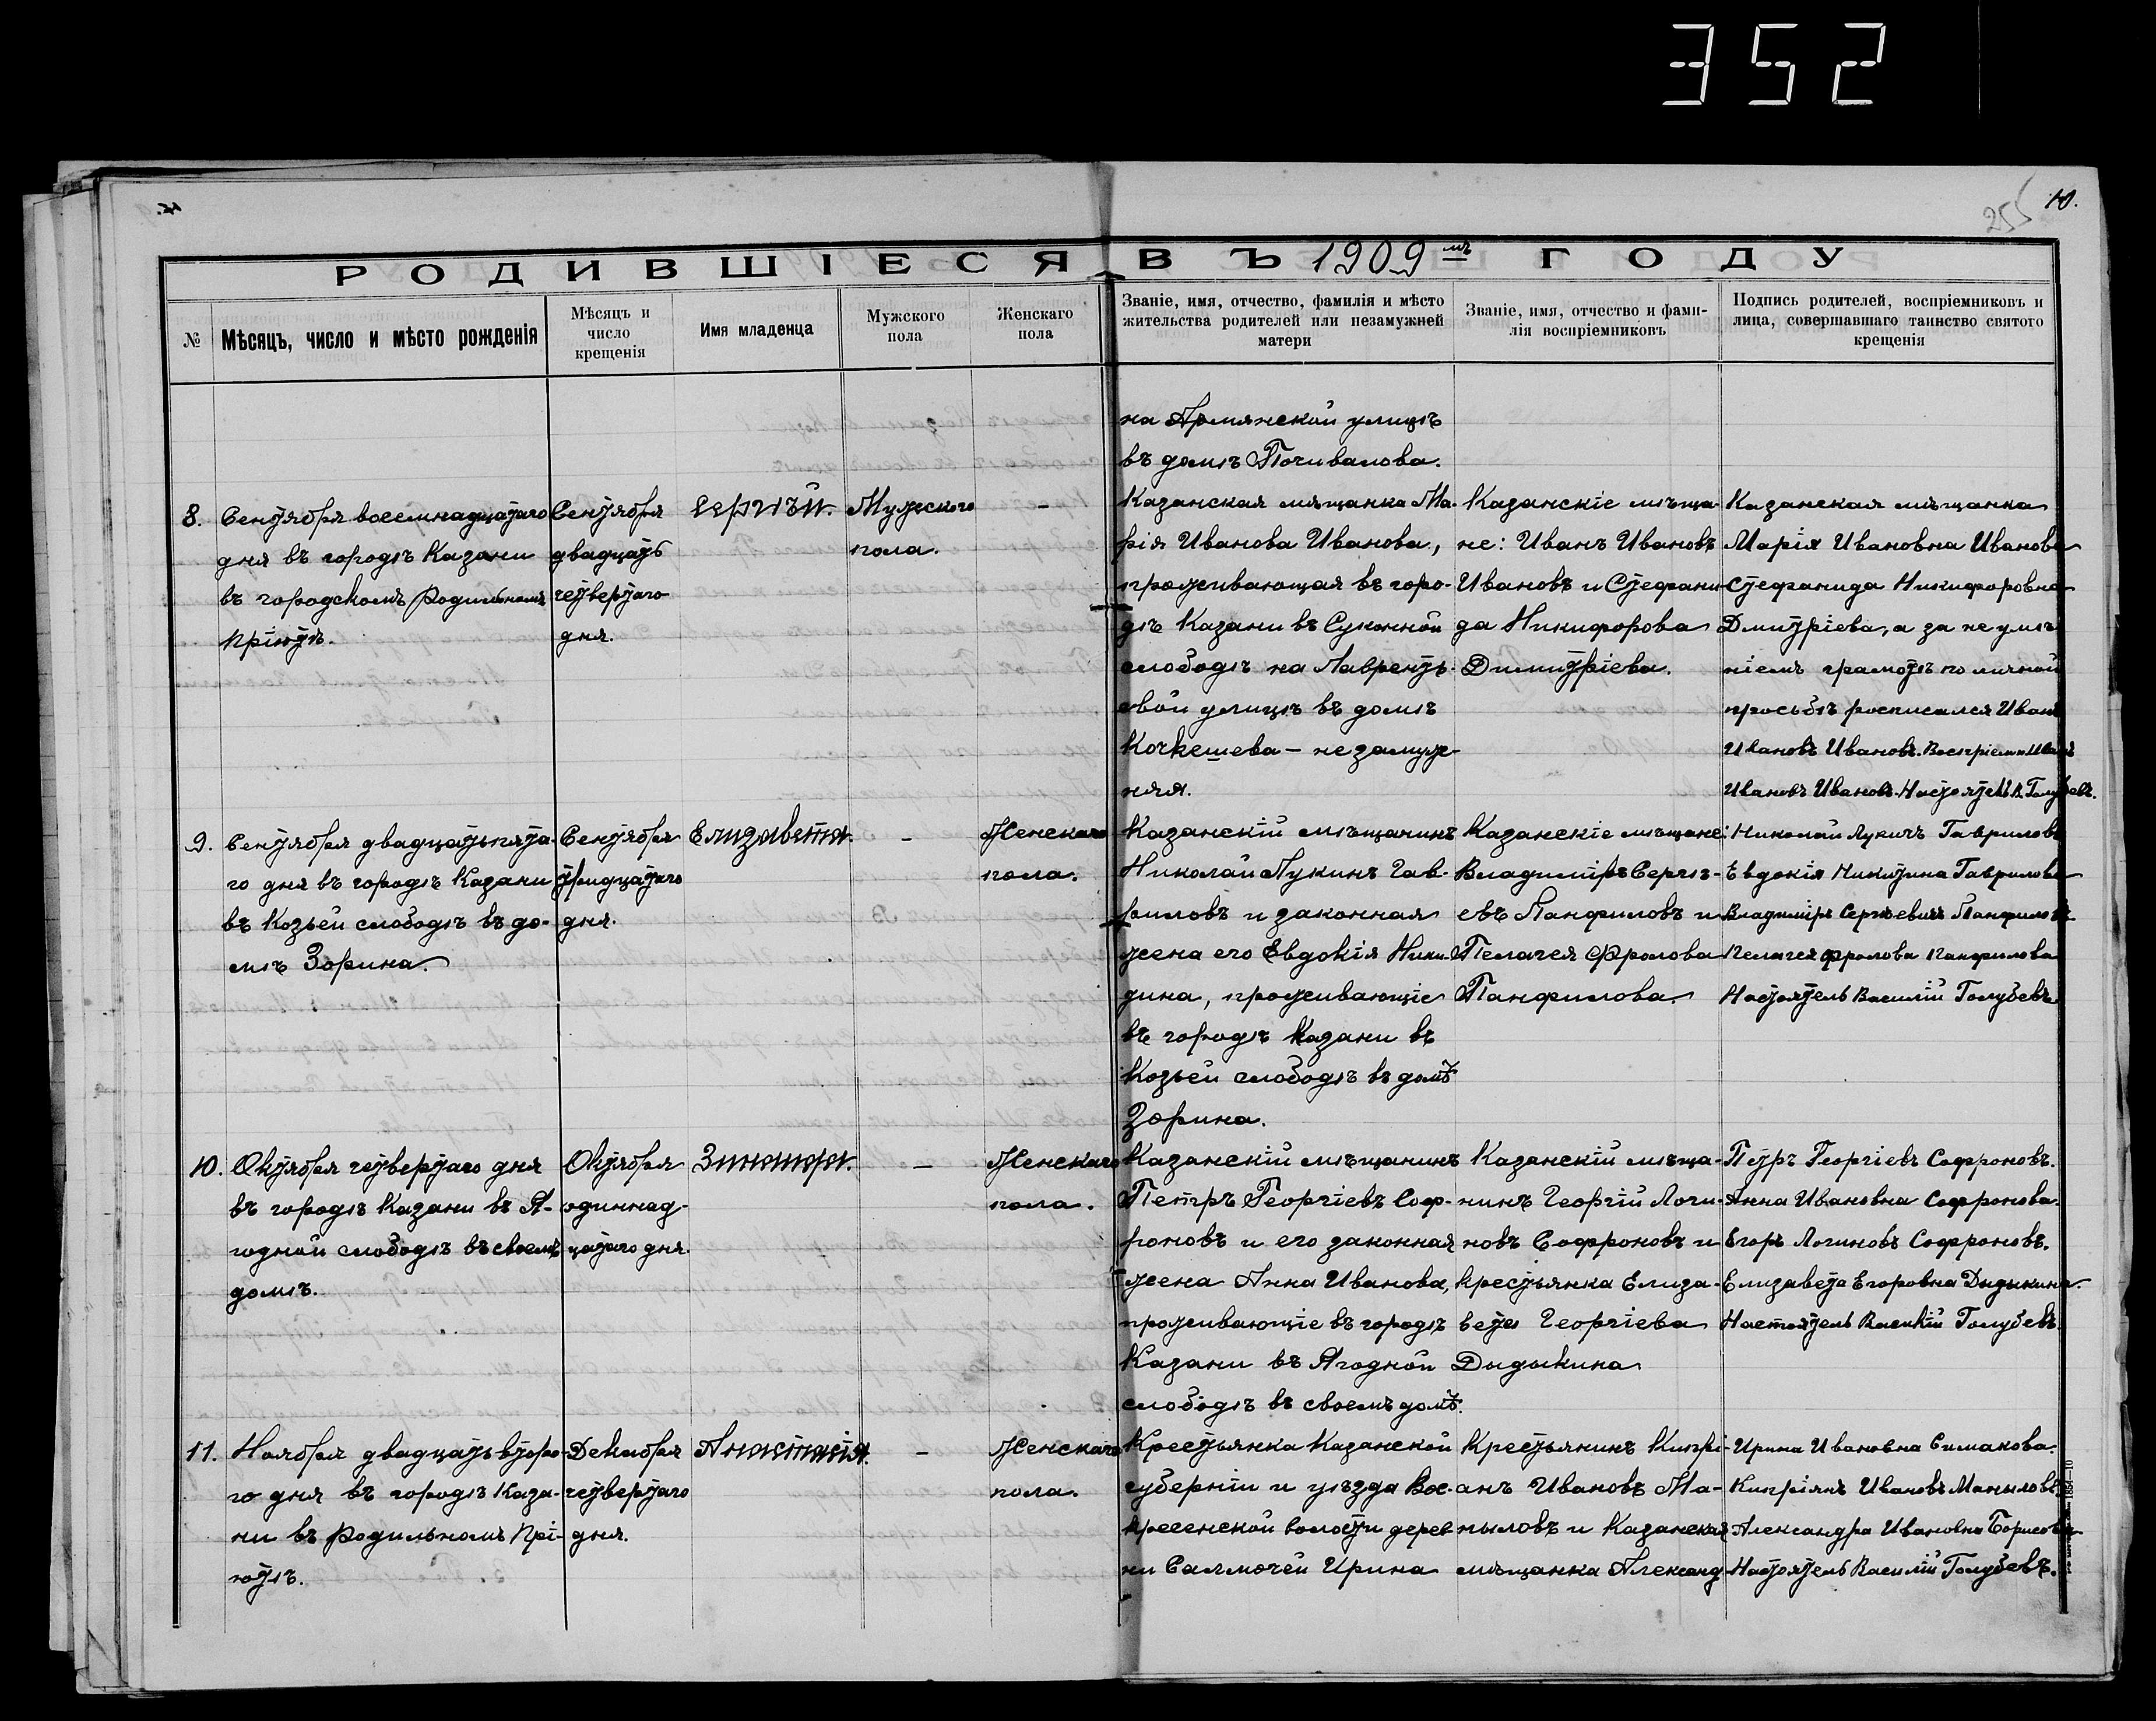 352
255
10.
РОДИВШІЕСЯ ВЪ 1909мъ ГОДУ
№
Мѣсяцъ, число и мѣсто рожденія
Мѣсяцъ и
число
крещенія
Имя младенца
Мужского
пола
Женскаго
пола
Званіе, имя, отчество, фамилія и мѣсто
жительства родителей или незамужней
матери
Званіе, имя, отчество и фами-
лія воспріемниковъ
Подпись родителей, воспріемниковъ и
лица, совершавшаго таинство святого
крещенія
на Армянской улицѣ
въ домѣ Почивалова.
8.
Сентября восемнадцатаго
дня въ городѣ Казани
въ городскомъ Родильномъ
Пріютѣ.
Сентября
двадцать
четвертаго
дня.
Сергѣй.
Мужского
пола.
–
Казанская мѣщанка Ма-
рія Иванова Иванова,
проживающая въ горо-
дѣ Казани въ Суконной
слободѣ на Лаврентьевой
улицѣ въ домѣ
Кочкешева – незамуж-
няя.
Казанскіе мѣща-
не: Иванъ Ивановъ
Ивановъ и Стефани-
да Никифорова
Димитріева.
Казанская мѣщанка
Марія Ивановна Иванова
Стефанида Никифоровна
Дмитріева, а за не умѣ
ніемъ грамотѣ по личной
просьбѣ росписался Иванъ
Ивановъ Ивановъ. Воспріемн. Иванъ
Ивановъ Ивановъ. Настоятель В. Голубевъ.
9.
Сентября двадцатьпята-
го дня въ городѣ Казани
въ Козьей слободѣ въ до-
мѣ Зорина.
Сентября
тридцатаго
дня.
Елизавета.
–
Женскаго
пола.
Казанскій мѣщанинъ
Николай Лукинъ Гав-
риловъ и законная
жена его Евдокія Ники-
тина, проживающіе
въ городѣ Казани въ
Козьей слободѣ въ домѣ
Зорина.
Казанскіе мѣщане:
Владиміръ Сергѣ-
евъ Панфиловъ и
Пелагея Фролова
Панфилова.
Николай Лукичъ Гавриловъ
Евдокія Никитина Гаврилова
Владиміръ Сергѣевичъ Панфиловъ
Пелагея Фролова Панфилова
Настоятель Василій Голубевъ
10.
Октября четвертаго дня
въ городѣ Казани въ Я-
годной слободѣ въ своемъ
домѣ.
Октября
одиннад-
цатаго дня.
Зинаида.
–
Женскаго
пола.
Казанскій мѣщанинъ
Петръ Георгіевъ Соф-
роновъ и его законная
жена Анна Иванова,
проживающіе въ городѣ
Казани въ Ягодной
слободѣ въ своемъ домѣ.
Казанскій мѣща-
нинъ Георгій Логи-
новъ Софроновъ и
крестьянка Елиза-
вета Георгіева
Дыдыкина
Петръ Георгіевъ Софроновъ.
Анна Ивановна Софронова.
Егоръ Логиновъ Софроновъ.
Елизавета Егоровна Дыдыкина.
Настоятель Василій Голубевъ.
11.
Ноября двадцать второ-
го дня въ городѣ Каза-
ни въ Родильномъ Прі-
ютѣ.
Декабря
четвертаго
дня.
Анастасія.
–
Женскаго
пола.
Крестьянка Казанской
губерніи и уѣзда Вос-
кресенской волости дерев-
ни Салмочей Ирина
Крестьянинъ Кипрі-
анъ Ивановъ Ма-
ныловъ и Казанская
мѣщанка Александ-
Ирина Ивановна Симакова.
Кипріянъ Ивановъ Маныловъ.
Александра Ивановна Борисова
Настоятель Василій Голубевъ.